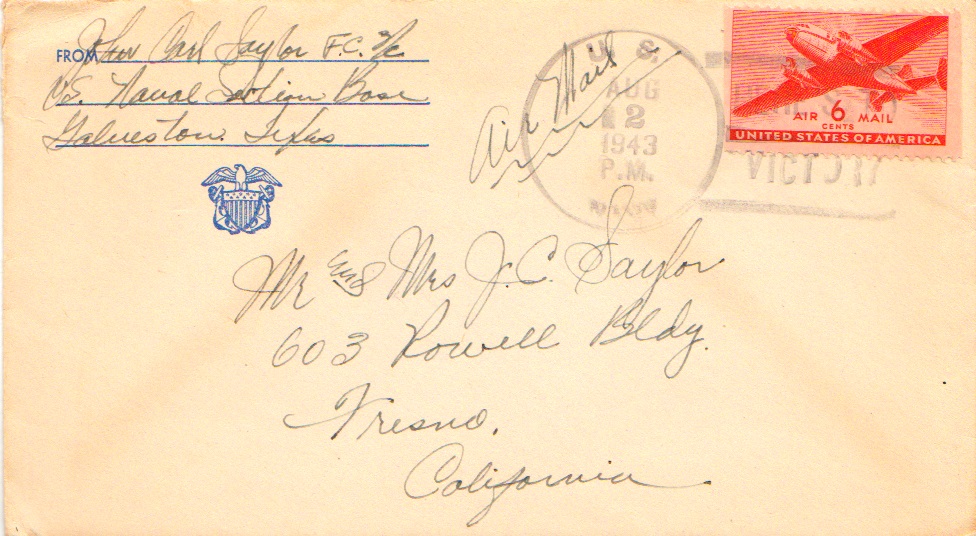 FROM John Carl Saylor F.C. 3/c
U.S. Naval Section Base
Galveston. Texas
Air Mail
U. S.
AUG
12
1943
P.M.
NAVY
VICTORY
AIR 6 MAIL
CENTS
UNITED STATES OF AMERICA
Mr and Mrs J. C. Saylor
603 Rowell Bldg.
Fresno.
California